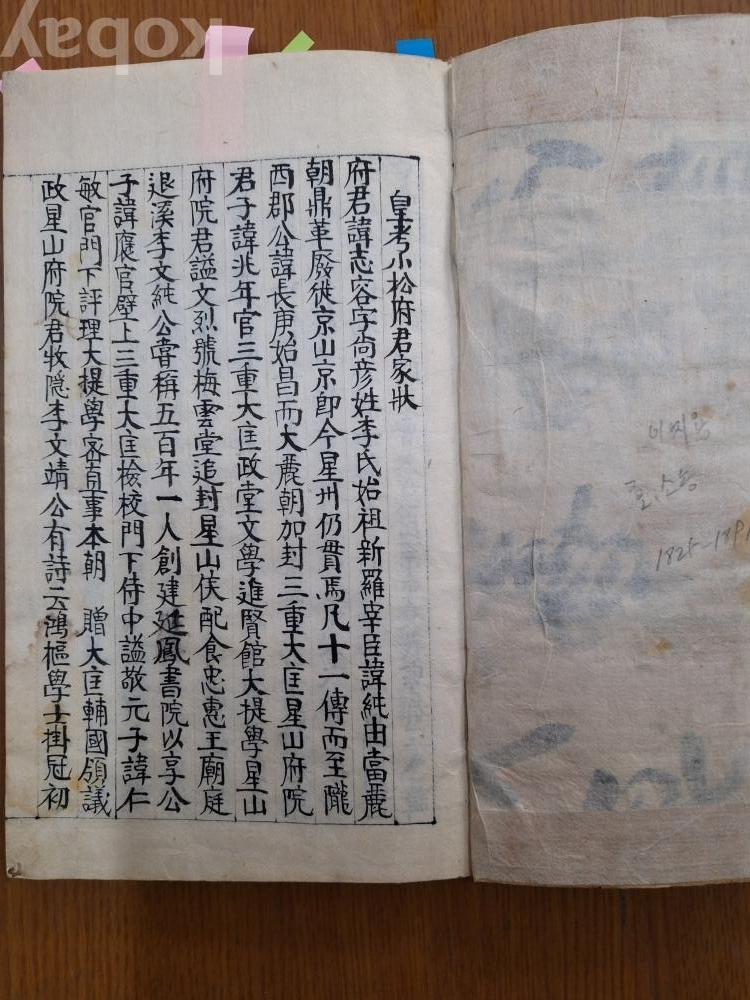 皇考小松府君家狀
府君諱志容字尙彦姓李氏始祖新羅宰臣諱純由當麗
朝鼎革廢徙京山京卽今星州仍貫焉凡十一傳而至隴
西郡公諱長庚始昌而大麗朝加封三重大匡星山府院
君子諱兆年官三重大匡政堂文學進賢館大提學星山
府院君謚文烈號梅雲堂追封星山侯配食忠惠王廟庭
退溪李文純公嘗稱五百年一人創建延鳳書院以享公
子諱褒官壁上三重大匡檢校門下侍中謚敬元子諱仁
敏官門下評理大提學密直事本朝 贈大匡輔國領議
政星山府院君牧隱李文靖公有詩云鴻樞學士掛冠初
1825~1891
kobay